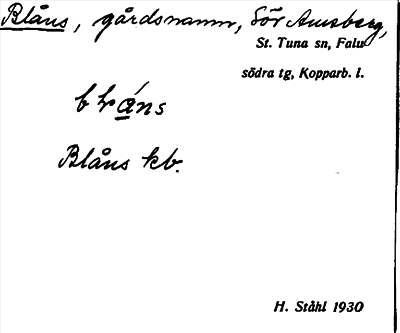 Blåns, gårdsnamn, Sör Amsberg,
St. Tuna sn, Falu
södra tg, Kopparb. l.
Blåns kb.
H. Ståhl 1930